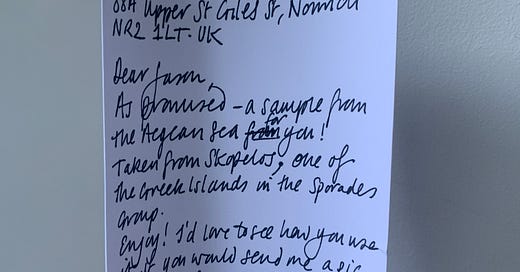 Upper St Giles St, Norwich
NR2 1LT. UK
Dear Jason,
As promised - a sample from
the Aegean Sea from for you!
Taken from Skopelos, one of
the Greek Islands in the Sporades
Group.
Enjoy! I'd love to see how you use
it if you would send me a pic